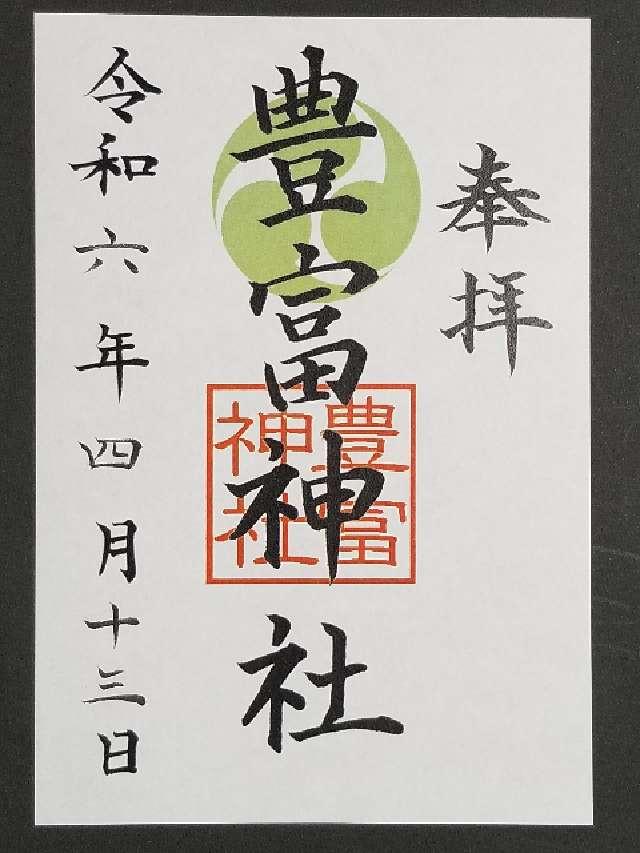 奉拝
豊富神社
豊富
神社
令和六年四月十三日